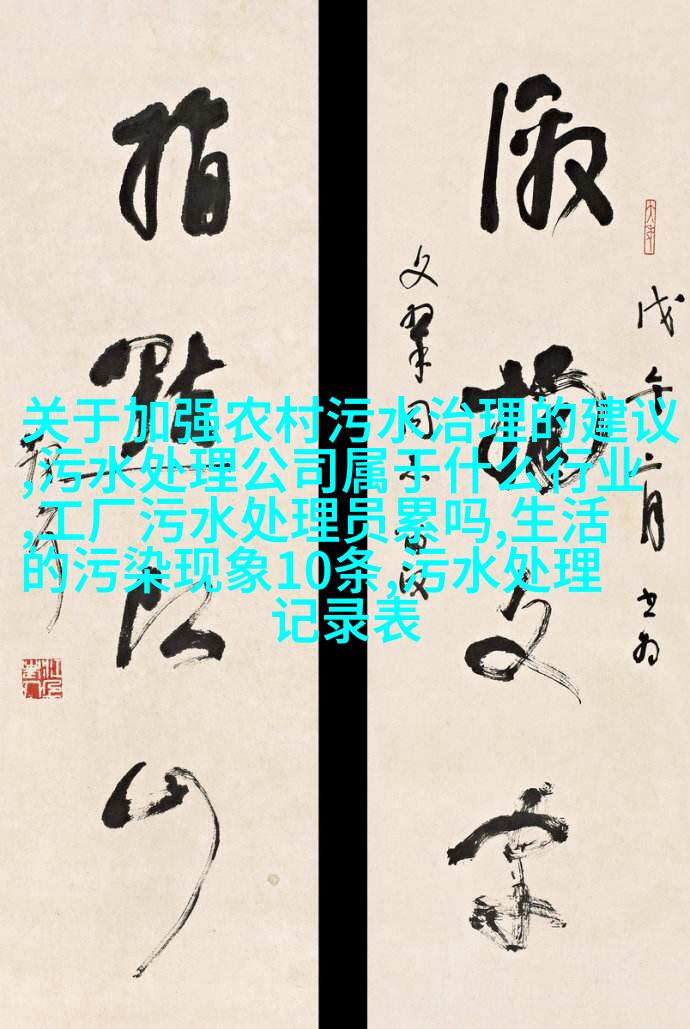 关于加强农村污水治理的建议
,污水处理公司属于什么行业
,工厂污水处理员累吗,生活
的污染现象10条,污水处理
记录表
激揚文字
指點江山